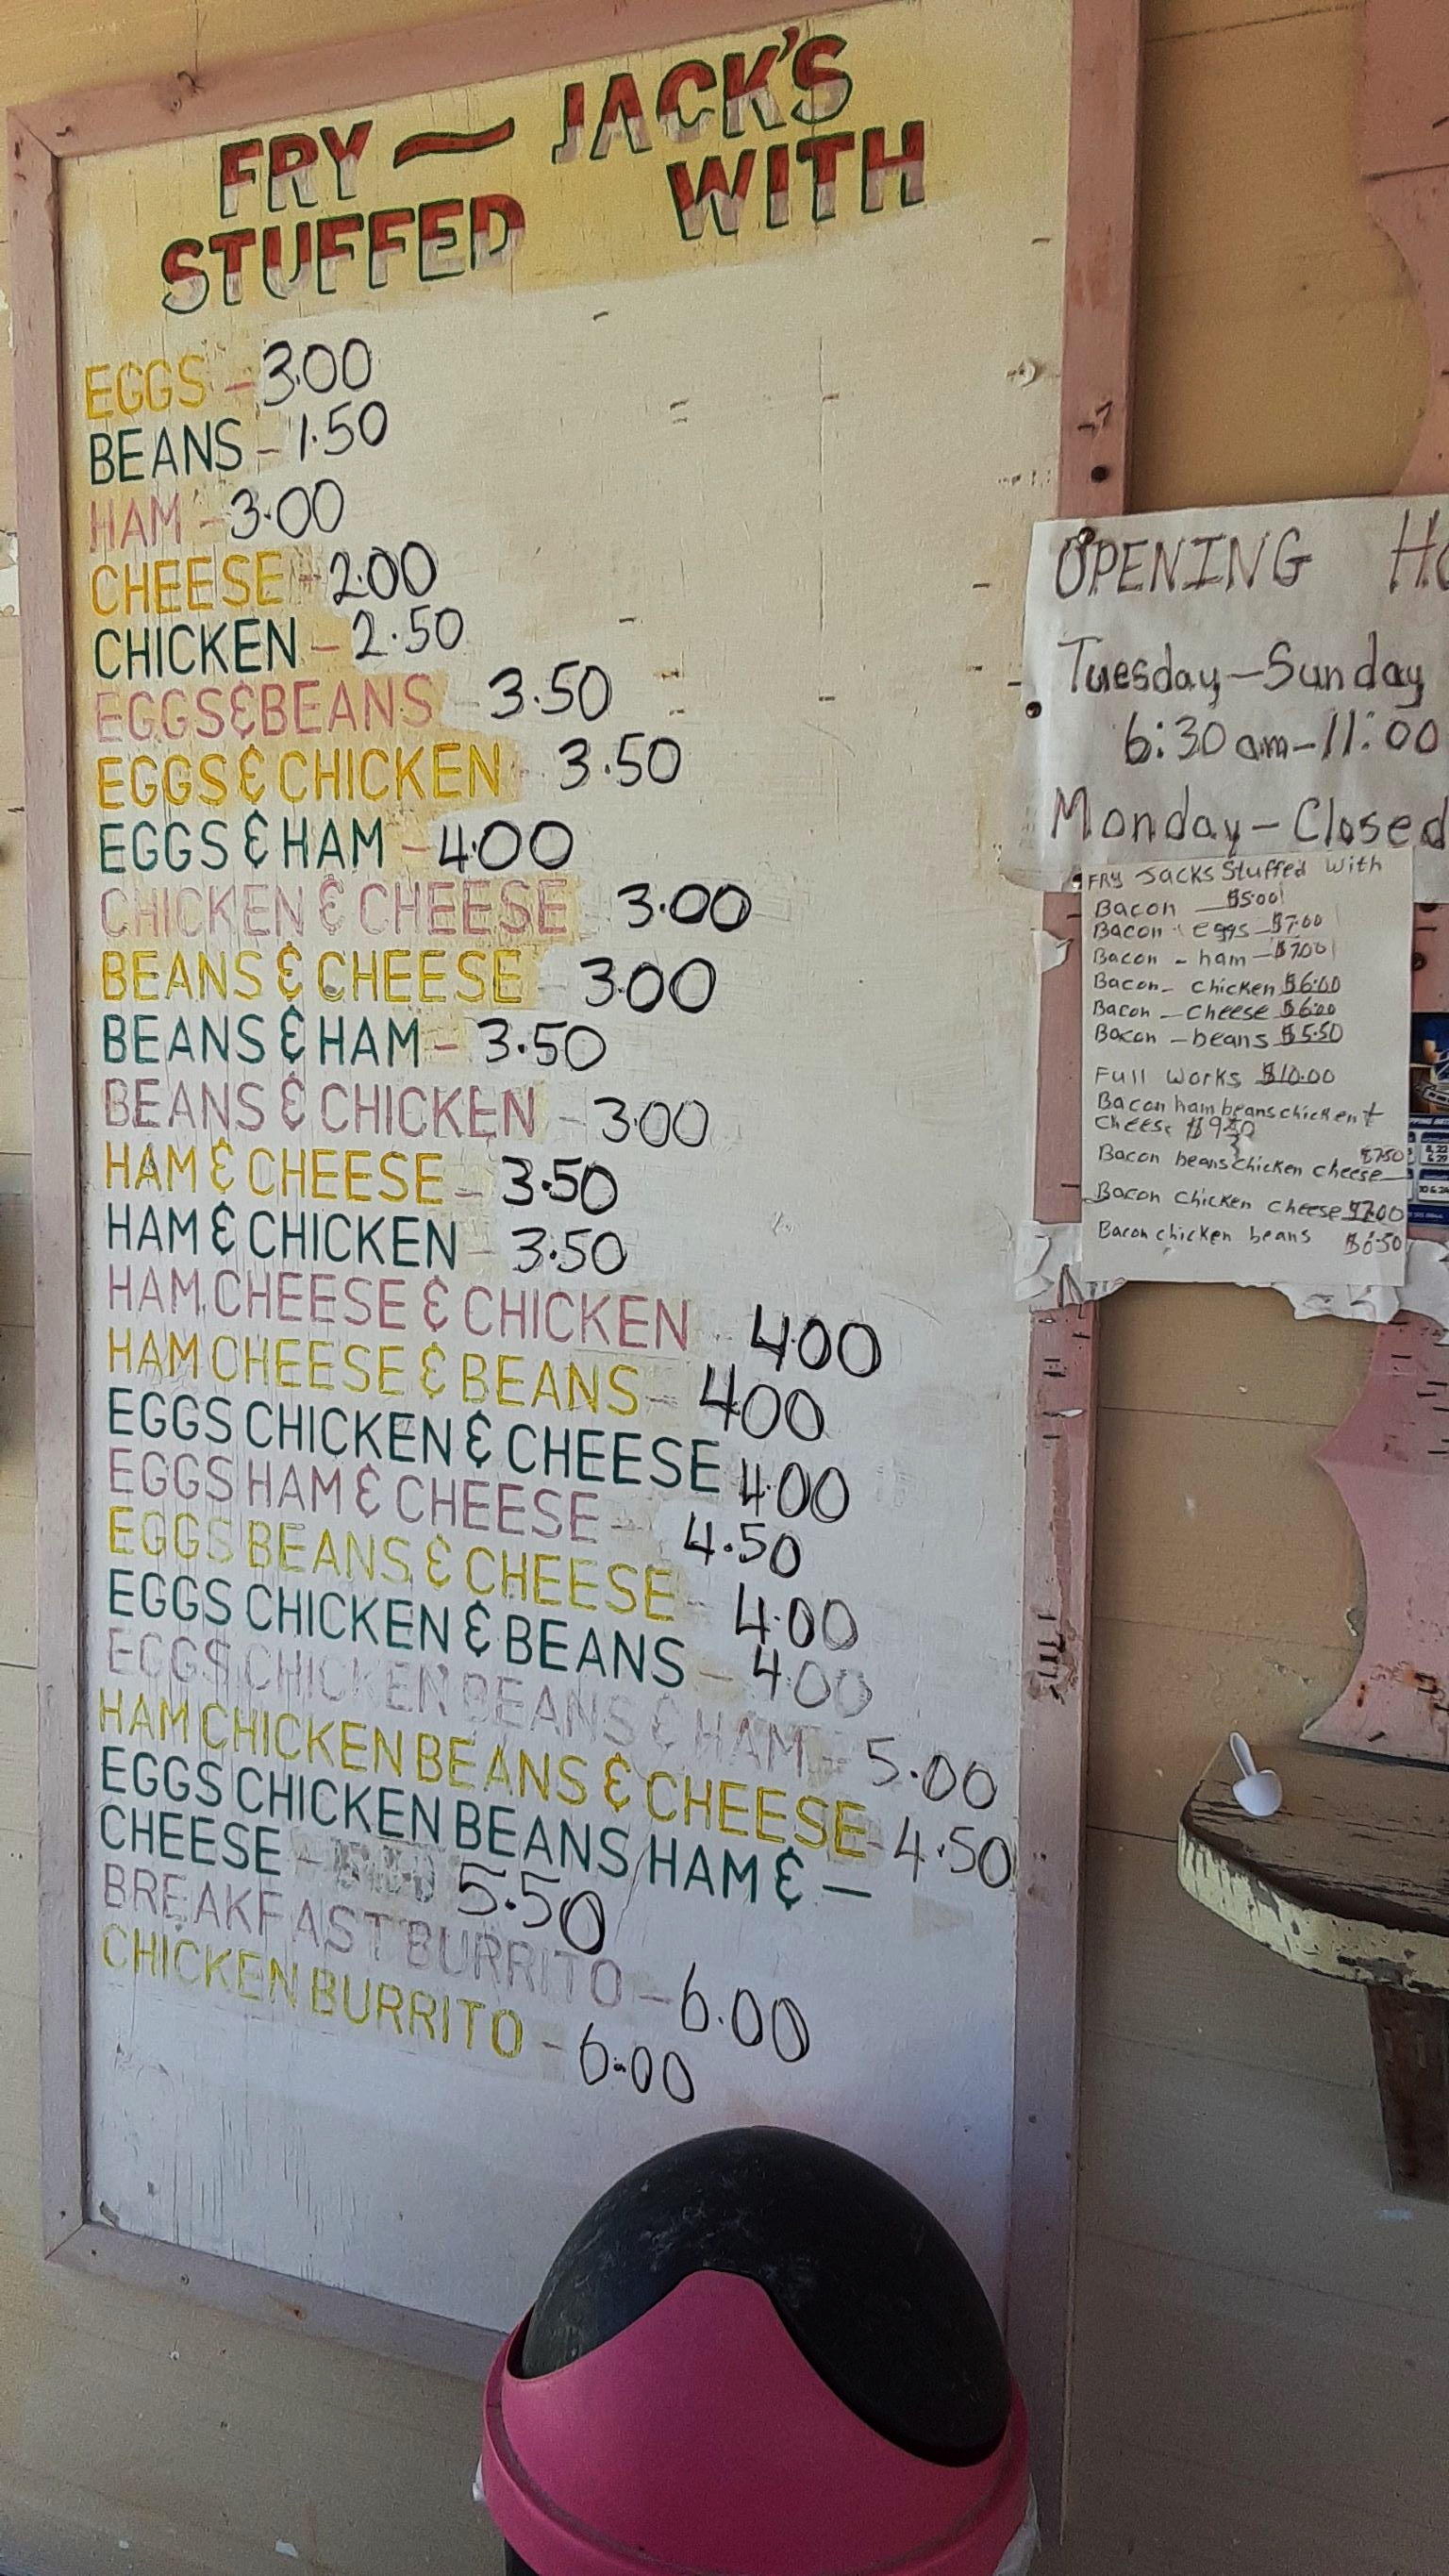 FRY — JACK'S
STUFFED WITH
EGGS - 3.00
BEANS - 1.50
HAM - 3.00
CHEESE - 2.00
CHICKEN - 2.50
EGGS & BEANS - 3.50
EGGS & CHICKEN - 3.50
EGGS & HAM - 4.00
CHICKEN & CHEESE 3.00
BEANS & CHEESE 3.00
BEANS & HAM - 3.50
BEANS & CHICKEN - 3.00
HAM & CHEESE - 3.50
HAM & CHICKEN - 3.50
HAM, CHEESE & CHICKEN - 4.00
HAM CHEESE & BEANS - 4.00
EGGS CHICKEN & CHEESE 4.00
EGGS HAM & CHEESE - 4.50
EGGS BEANS & CHEESE - 4.00
EGGS CHICKEN & BEANS - 4.00
EGGS CHICKEN BEANS & HAM - 5.00
HAM CHICKEN BEANS & CHEESE - 4.50
EGGS CHICKEN BEANS HAM & —
CHEESE - 5.50
BREAKFAST BURRITO - 6.00
CHICKEN BURRITO - 6.00
OPENING
Tuesday - Sunday
6:30 am - 11:00
Monday - Closed
FRY Jacks Stuffed With
Bacon $5.00
Bacon eggs $7.00
Bacon - ham - $7.00
Bacon - chicken $6.00
Bacon - cheese $6.00
Bacon - beans $5.50
Full Works $10.00
Bacon ham beans chicken +
cheese $9.50
Bacon beans chicken cheese $7.50
Bacon chicken cheese $7.00
Bacon chicken beans $6.50